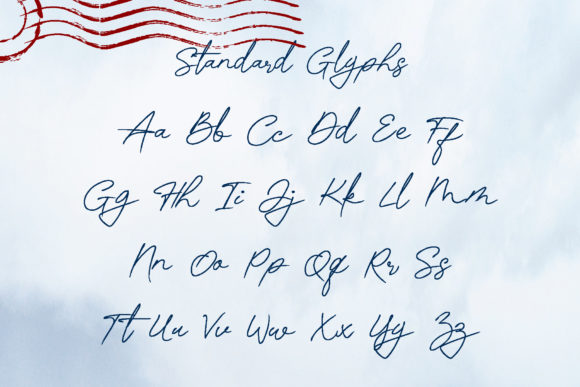 Standard Glyphs
Aa Bb Cc Dd Ee Ff
Gg Hh Ii Jj Kk Ll Mm
Nn Oo Pp Qq Rr Ss
Tt Uu Vv Ww Xx Yy Zz